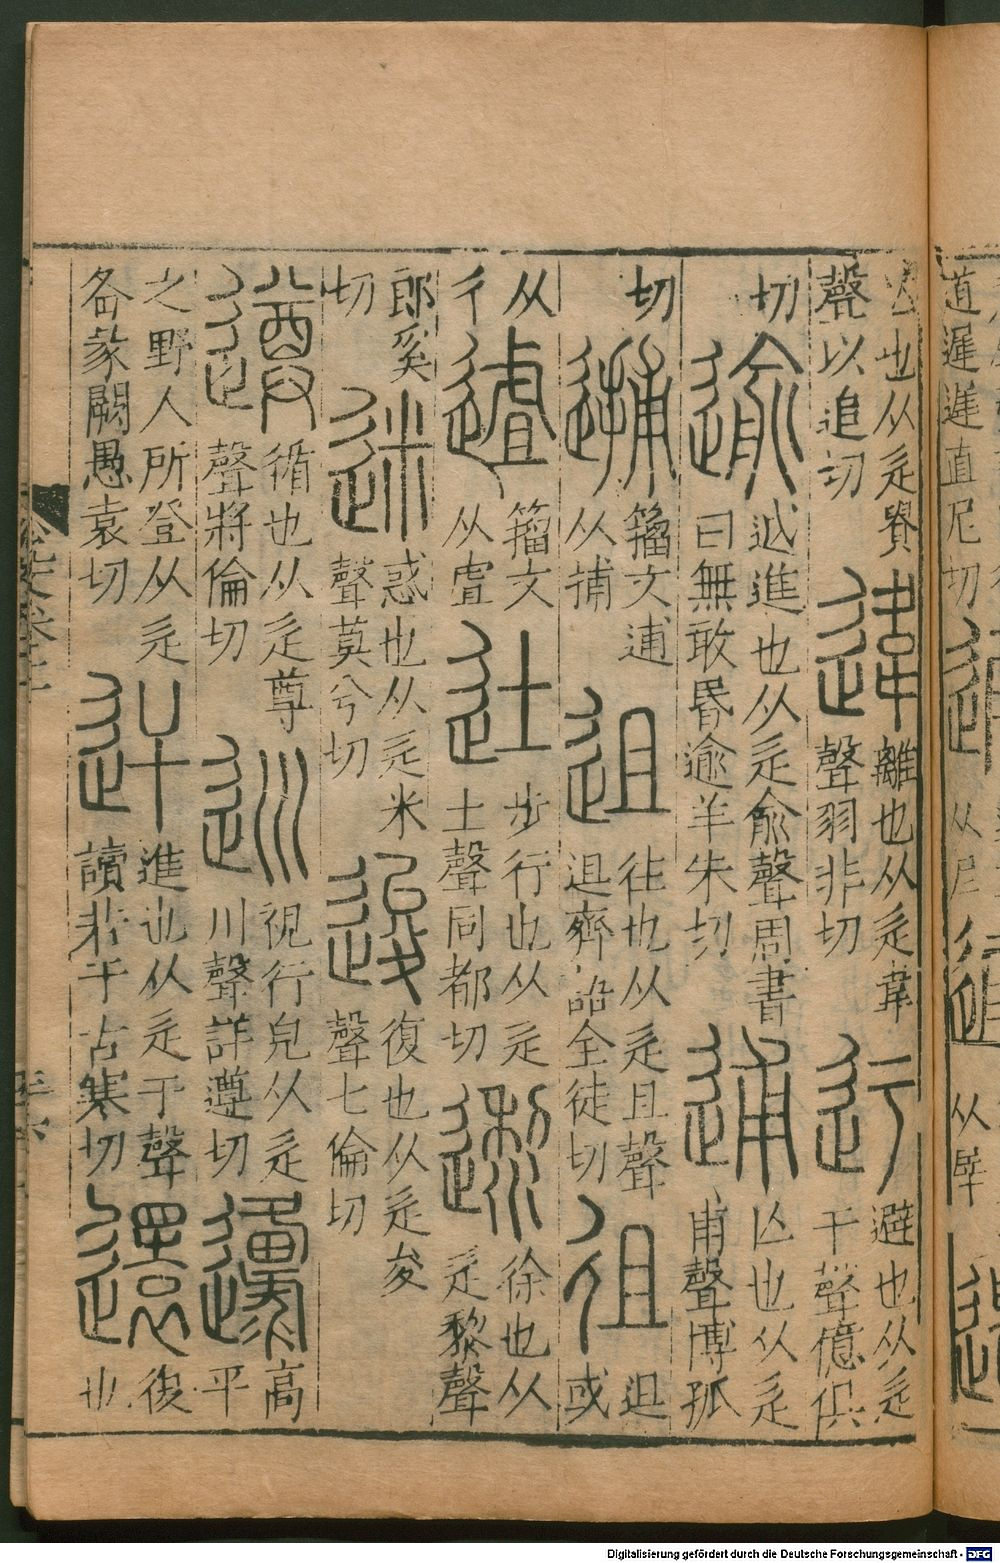 道遲遲直尼切
从尼
也从辵貴聲以追切違離也从辵韋聲羽非切迂避也从辵于聲億俱
切逾越進也从辵俞聲周書曰無敢昬逾羊朱切逋亾也从辵甫聲博孤
切𨔡籀文逋从捕退往也从辵且聲退齊語全徒切徂退或
从彳𨖆籀文从虘徒步行也从辵土聲同都切邌徐也从辵黎聲
郎奚切迷惑也从辵米聲莫兮切逡復也从辵夋聲七倫切
遵循也从辵尊聲將倫切巡視行皃从辵川聲詳遵切邍高平
之野人所登从辵备彖闕愚袁切迀進也从辵干聲讀若干古寒切還復也
Digitalisierung gefördert durch die Deutsche Forschungsgemeinschaft - DFG